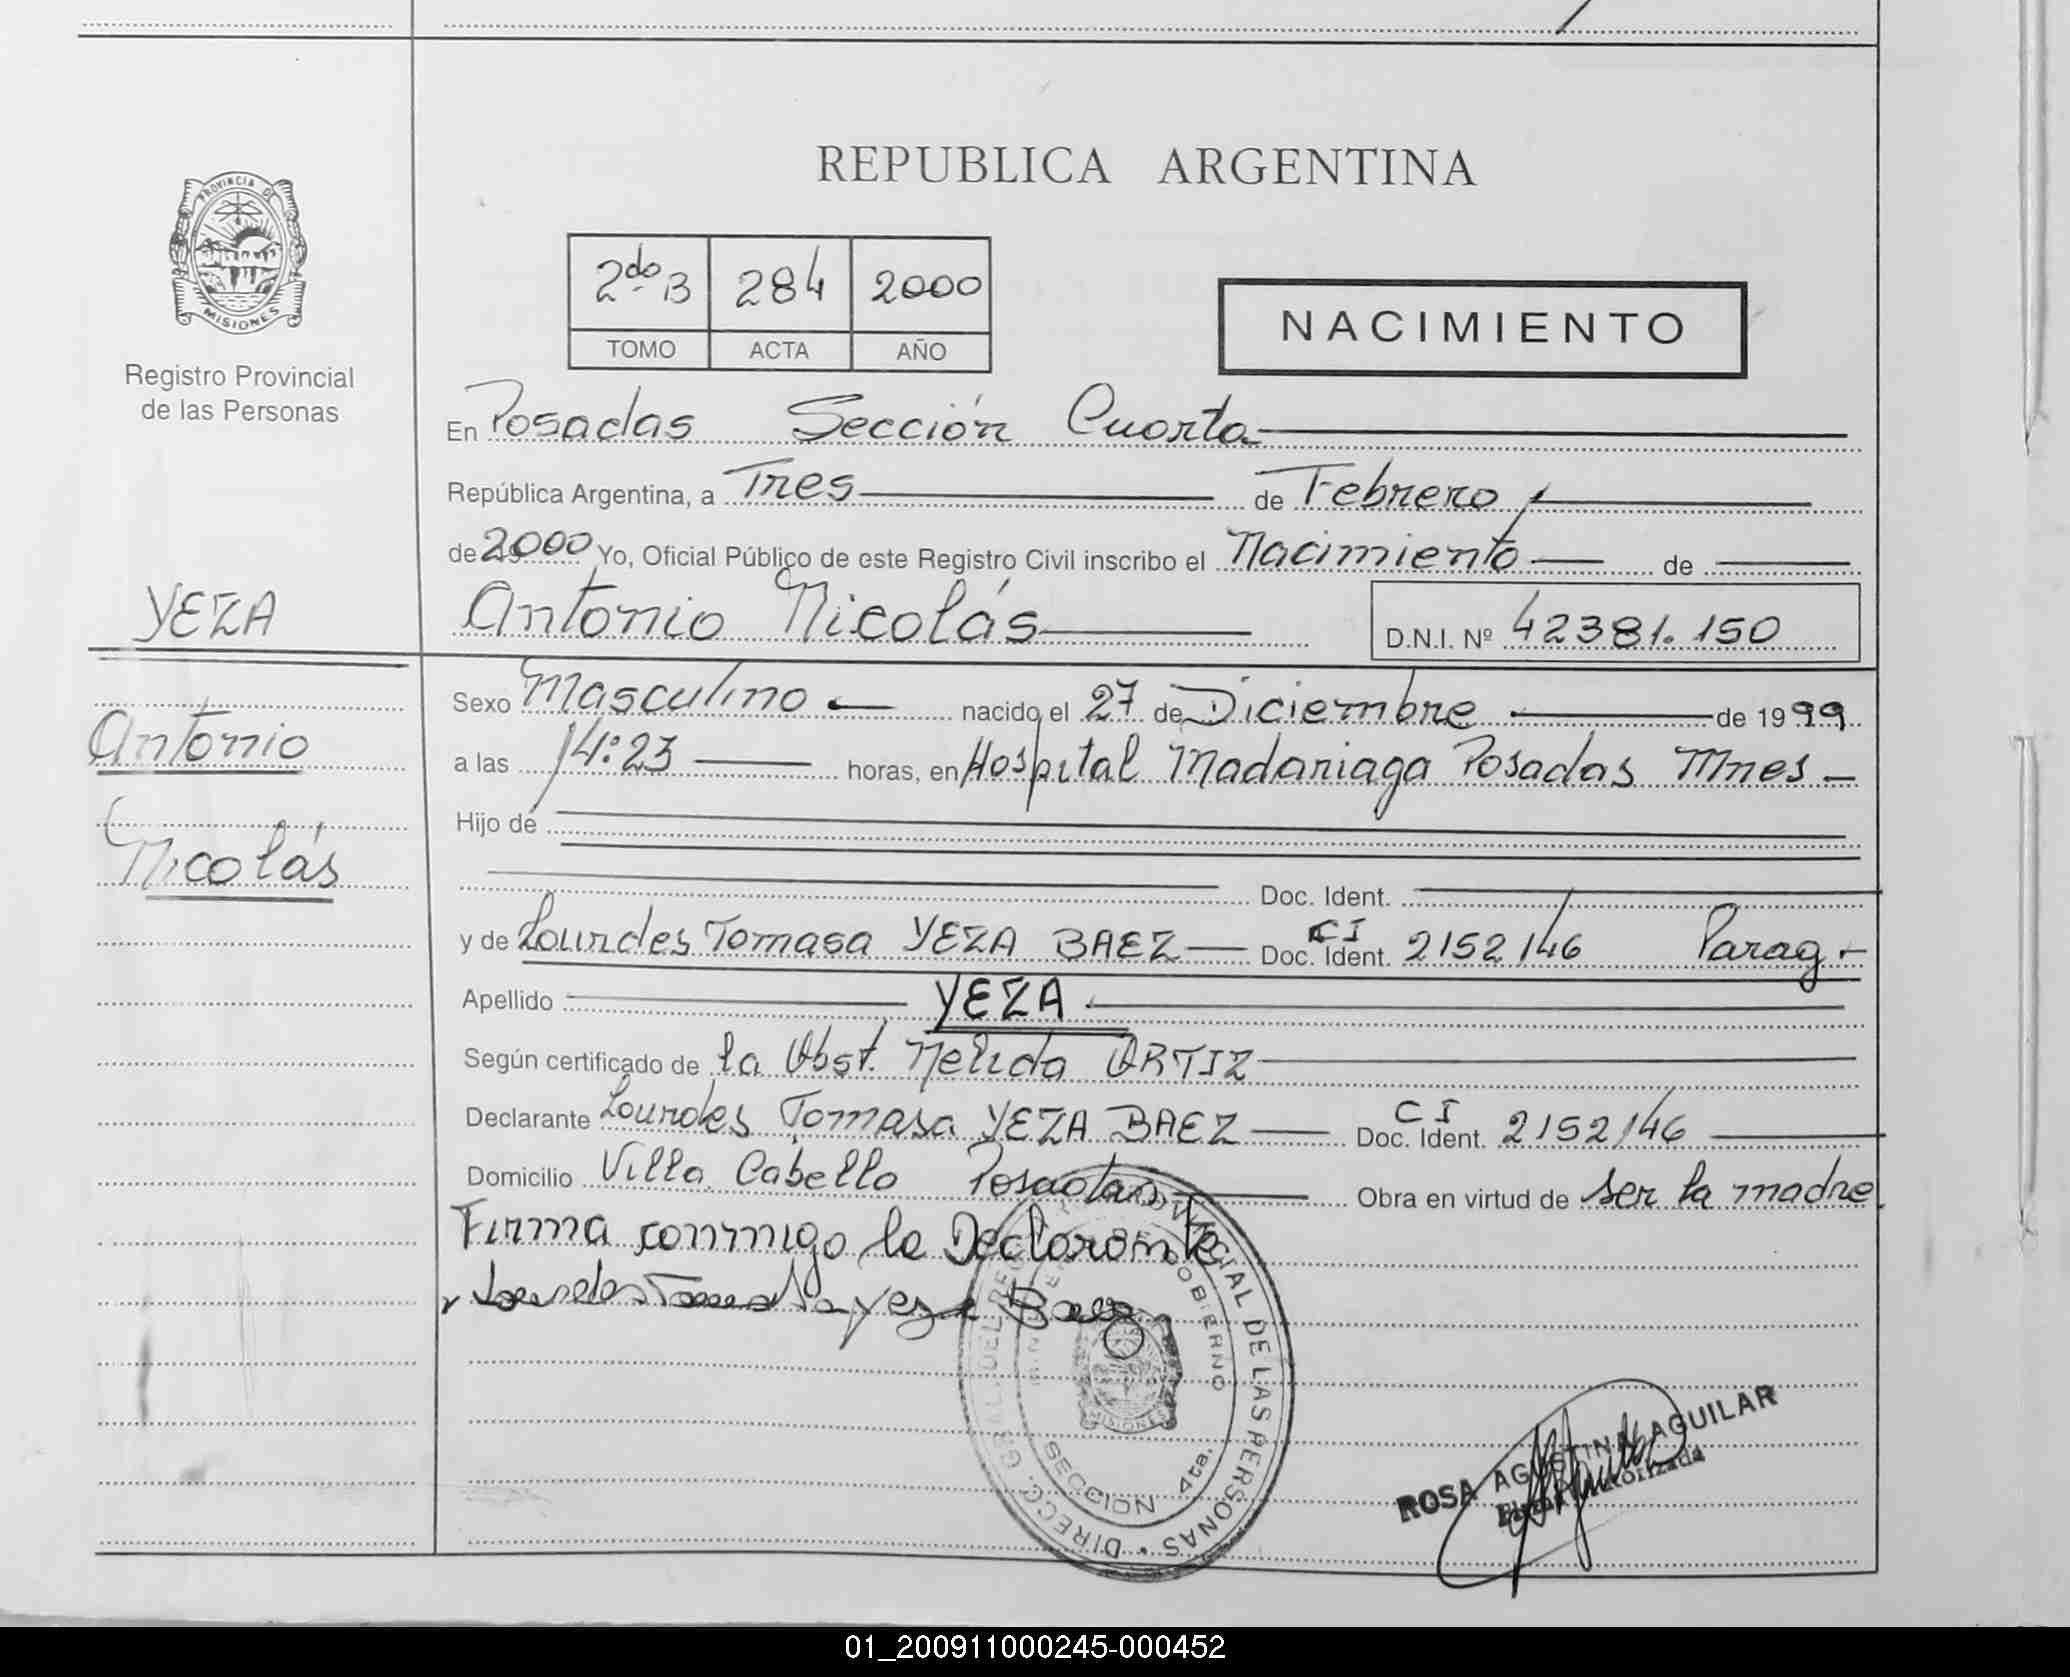 REPUBLICA ARGENTINA
PROVINCIA DE
MISIONES
Registro Provincial
de las Personas
2do B 284 2000
TOMO ACTA AÑO
NACIMIENTO
En Posadas Sección Cuarta
República Argentina, a Tres de Febrero
de 2000 Yo, Oficial Público de este Registro Civil inscribo el Nacimiento de
YEZA
Antonio Nicolás D.N.I. Nº 42381.150
Antonio
Nicolás
Sexo Masculino nacido el 27 de Diciembre de 1999
a las 14:23 horas, en Hospital Madariaga Posadas Mnes
Hijo de
Doc. Ident.
y de Lourdes Tomasa YEZA BAEZ CI Doc. Ident. 2152146 Parag
Apellido YEZA
Según certificado de la Obst. Nelida ORTIZ
Declarante Lourdes Tomasa YEZA BAEZ CI Doc. Ident. 2152146
Domicilio Villa Cabello Posadas Obra en virtud de ser la madre
Firma conmigo la Declarante
Lourdes Tomasa Yeza Baez
DIRECC. GRAL. DEL REG. PROVINCIAL DE LAS PERSONAS
GOBIERNO
MISIONES
SECCION 4ta.
ROSA AGUSTINA AGUILAR
Firma Autorizada
01_200911000245-000452